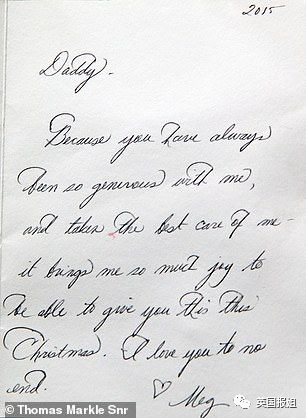 2015
Daddy.
Because you have always
been so generous with me,
and taken the best care of me -
it brings me so much joy to
be able to give you this this
Christmas. I love you to no
end.
♡ Meg
© Thomas Markle Snr
英国报姐